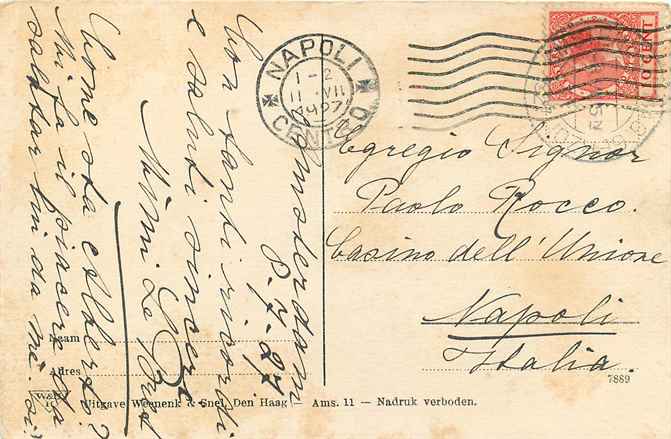 Amsterdam
8-7-27
Con tanti ricordi
e saluti sinceri
Mimi Le
Come sta Albert?
Mi fa il piacere da
salutarlui da me.
NAPOLI
1-2
11 VII
1927
CENTRO
CENT
Egregio Signor
Paolo Rocco.
Casino dell'Unione
Napoli
Italia.
Naam
Adres
7889
W&S
Uitgave Weenenk & Snel, Den Haag — Ams. 11 — Nadruk verboden.